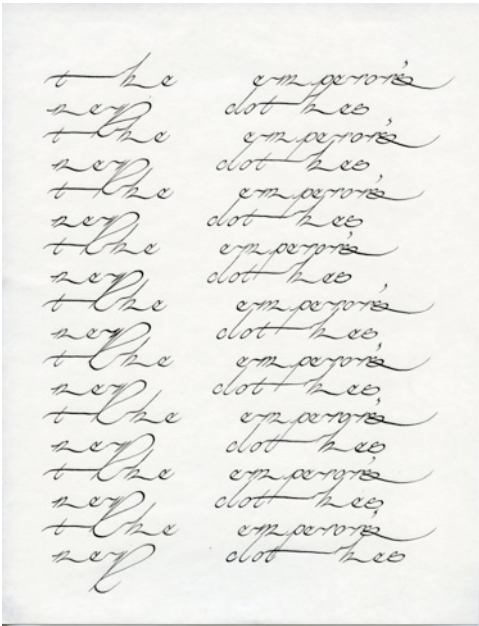 the emperor's
new clothes
the emperor's
new clothes
the emperor's
new clothes
the emperor's
new clothes
the emperor's
new clothes
the emperor's
new clothes
the emperor's
new clothes
the emperor's
new clothes
the emperor's
new clothes